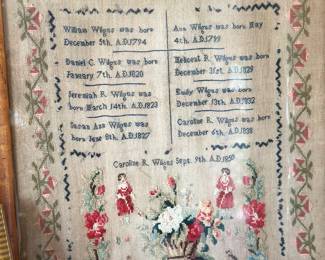 William Wilgus was born
December 5th. A.D.1794
Daniel C. Wilgus was born
January 7th. A.D.1820
Jeremiah R. Wilgus was
born March 14th. A.D.1823
Susan Ann Wilgus was
born June 8th. A.D.1827
Ann Wilgus was born May
4th. A.D.1799
Wilgus was born
December 31st. A.D.1829
Emily Wilgus was born
December 13th. A.D.1832
Caroline R. Wilgus was born
December 6th. A.D.1838
Caroline R. Wilgus Sept. 9th. A.D.1850